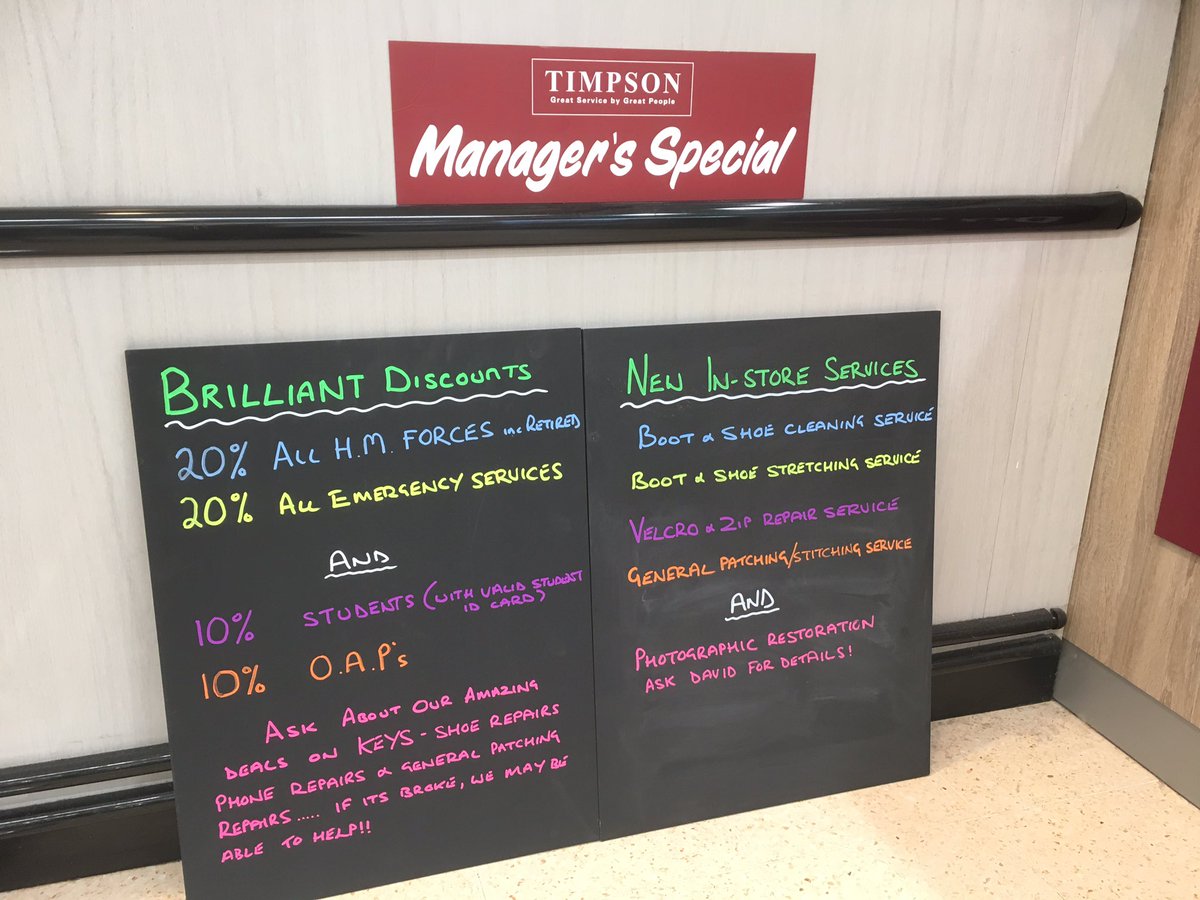 TIMPSON
Great Service by Great People
Manager's Special
BRILLIANT DISCOUNTS
20% ALL H.M. FORCES inc RETIRED
20% ALL EMERGENCY SERVICES
AND
10% STUDENTS (WITH VALID STUDENT
ID CARD)
10% O.A.P's
ASK ABOUT OUR AMAZING
DEALS ON KEYS - SHOE REPAIRS
PHONE REPAIRS & GENERAL PATCHING
REPAIRS..... IF ITS BROKE, WE MAY BE
ABLE TO HELP!!
NEW IN-STORE SERVICES
BOOT & SHOE CLEANING SERVICE
BOOT & SHOE STRETCHING SERVICE
VELCRO & ZIP REPAIR SERVICE
GENERAL PATCHING/STITCHING SERVICE
AND
PHOTOGRAPHIC RESTORATION
ASK DAVID FOR DETAILS!